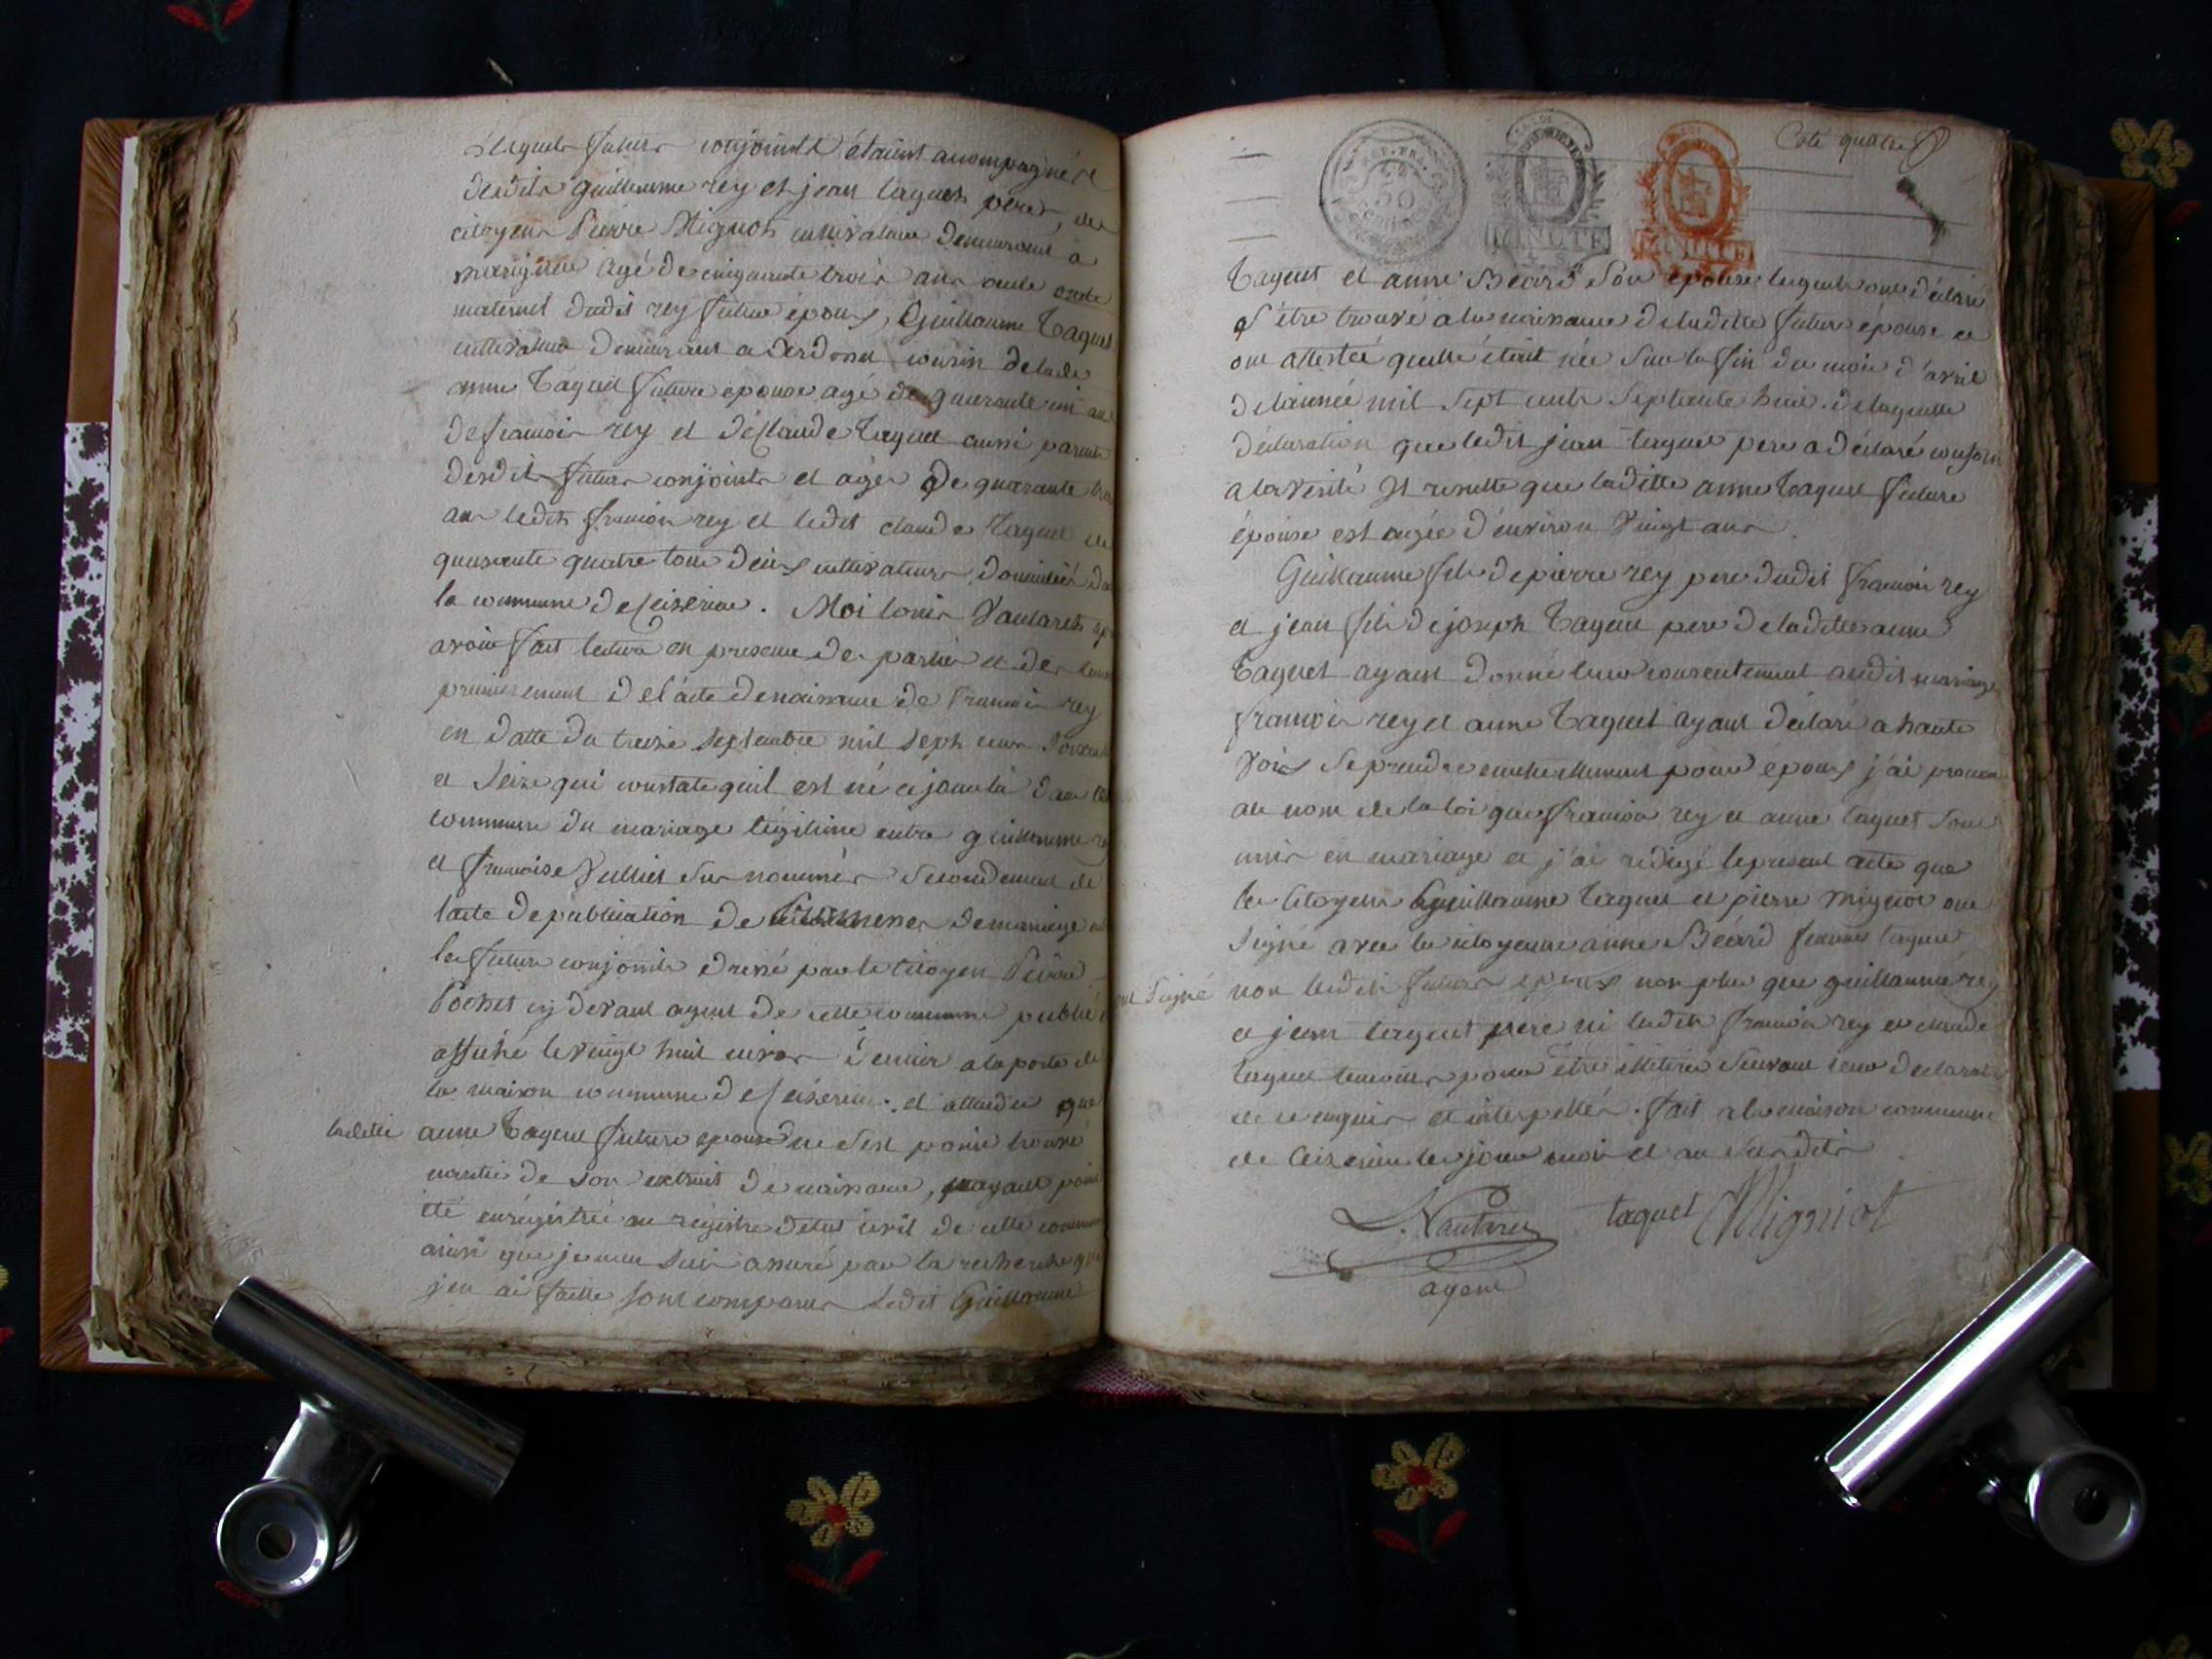 lesquels futurs conjoints étaient acompagnés
desdits guillaume rey et jean taquet peres, de
citoyens Pierre Mignot cultivateur demeurant a
marignieu agé de cinquante trois ans oncle
maternel dudit rey futur époux, Guillaume Taquet
cultivateur demeurant a cousin de lade
anne Taquet future épouse agé de quarante un ans
de francois rey et de claude taquet aussi parents
desdits futurs conjoints et agés de quarante
ans ledit francois rey et ledit claude taquet de
quarante quatre tous deux cultivateurs domiciliés
la commune de Ceizerieu. Moi louis Vautaret
avoir fait lecture en presence des parties et des
premierement de l'acte de naissance de francois rey
en datte du treize septembre mil sept cent soixante
et seize qui constate quil est né ce jour là dans
commune du mariage légitime entre guillaume
et francoise Vulliet surnommés secondement de
lacte de publication de promesses de mariage
les futurs conjoints dressé par le citoyen Pierre
Pochet cy devant agent de cette commune publié
affiché le vingt huit nivos dernier a la porte de
la maison commune de Ceizerieu. et attendu que
ladette anne Taquet future epouse ne sest point trouvé
nantie de son extrait de naissance, nayant point
été enrégistrée au régistre detat civil de cette commune
ainsi que je me suis assuré par la recherche que
jen ai faitte sont comparus ledit Guillaume
Coté quatre
REP. FRA.
50
MINUTE
MINUTE
Taquet et anne Béard son épouse lesquels ont déclaré
s'être trouvé a la naissance de ladette future épouse et
ont attesté quelle était née sur la fin du mois d'avril
de lannée mil sept cents septante huit. de laquelle
déclaration que ledit jean taquet pere a déclaré conforme
a la verité Il resulte que laditte anne taquet future
épouse est agée d'environ vingt ans
Guillaume fils de pierre rey pere dudit francois rey
et jean fils de joseph Taquet pere de laditte anne
Taquet ayant donné leur consentement audit mariage
francois rey et anne taquet ayant déclaré a haute
voix se prendre mutuellement pour époux j'ai prononcé
au nom de la loi que francois rey et anne taquet sont
unis en mariage et j'ai redigé le present acte que
les citoyens guillaume taquet et pierre mignot ont
signé avec la citoyenne anne Béard femme taquet
ont signé non lesdits futurs epoux non plus que guillaume rey
et jean taquet pere ni lesdits francois rey et claude
taquet temoins pour être illiterés suivant leur declaration
de ce enquis et interpellés. fait a la maison commune
de Ceizerieu les jour mois et an susdits
L. Vautaret taquet Migniot
agent